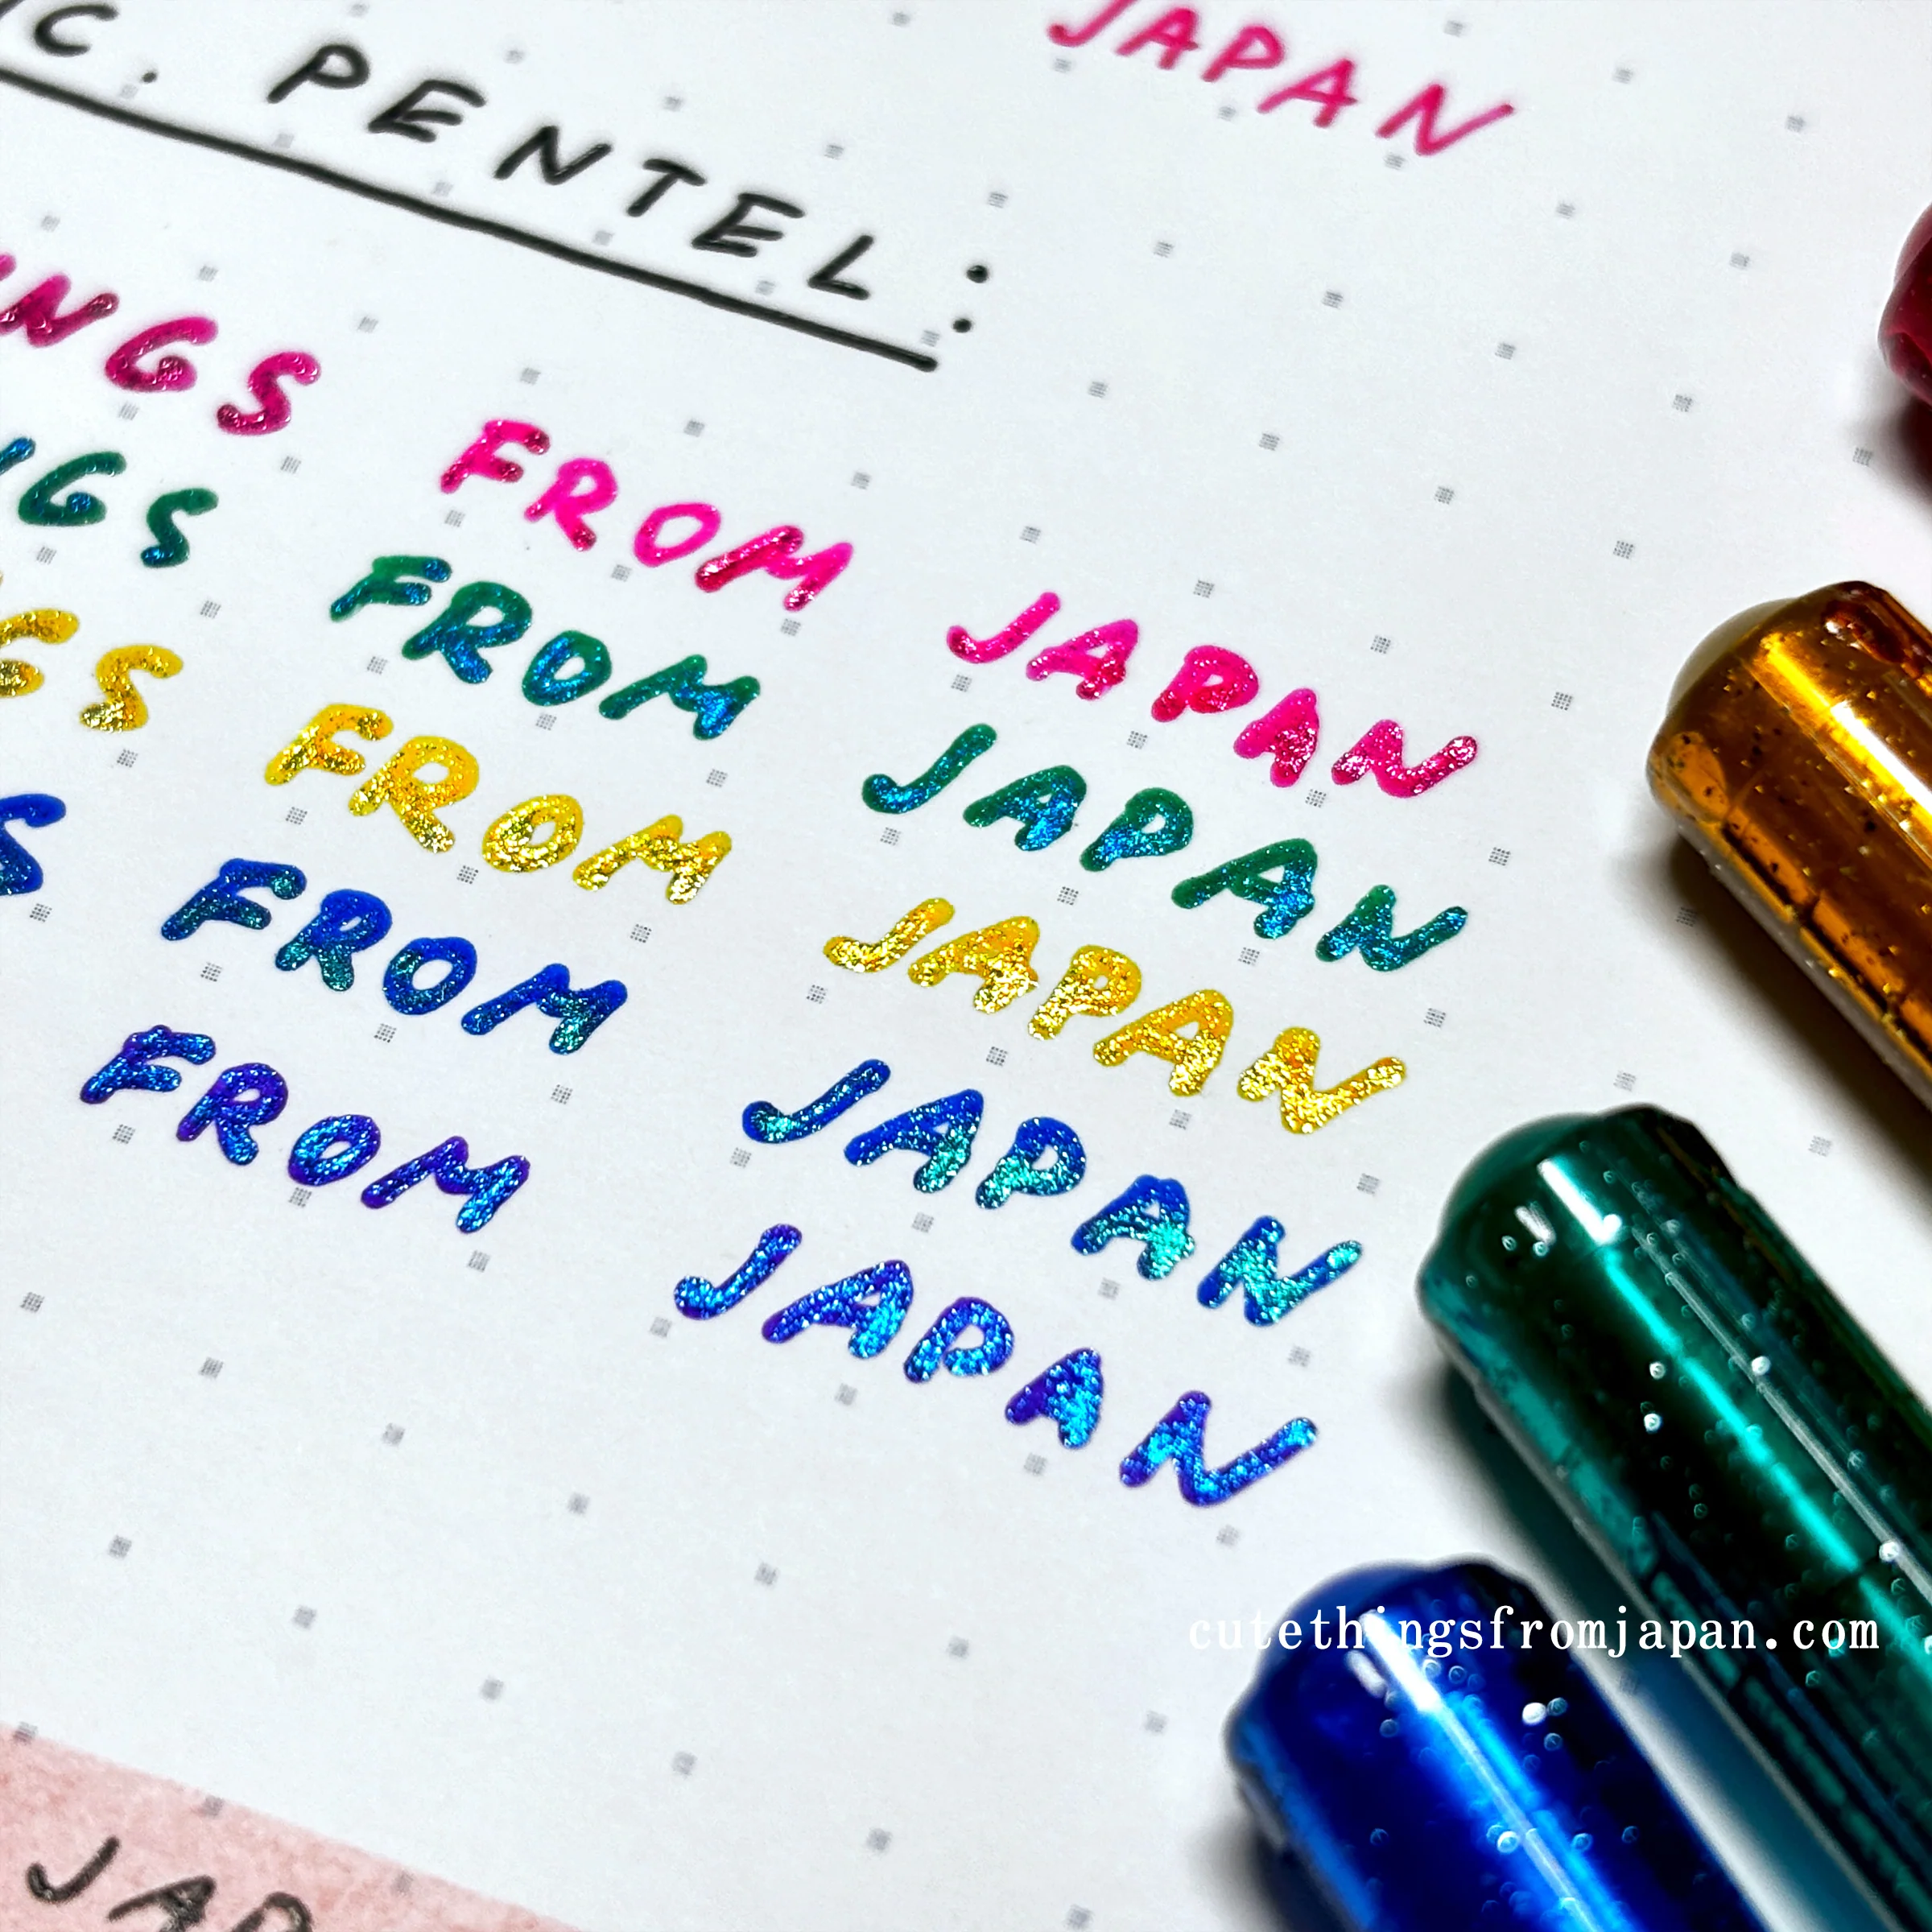 JAPAN
C. PENTEL:
NGS FROM JAPAN
GS FROM JAPAN
S FROM JAPAN
S FROM JAPAN
FROM JAPAN
cutethingsfromjapan.com
JAP